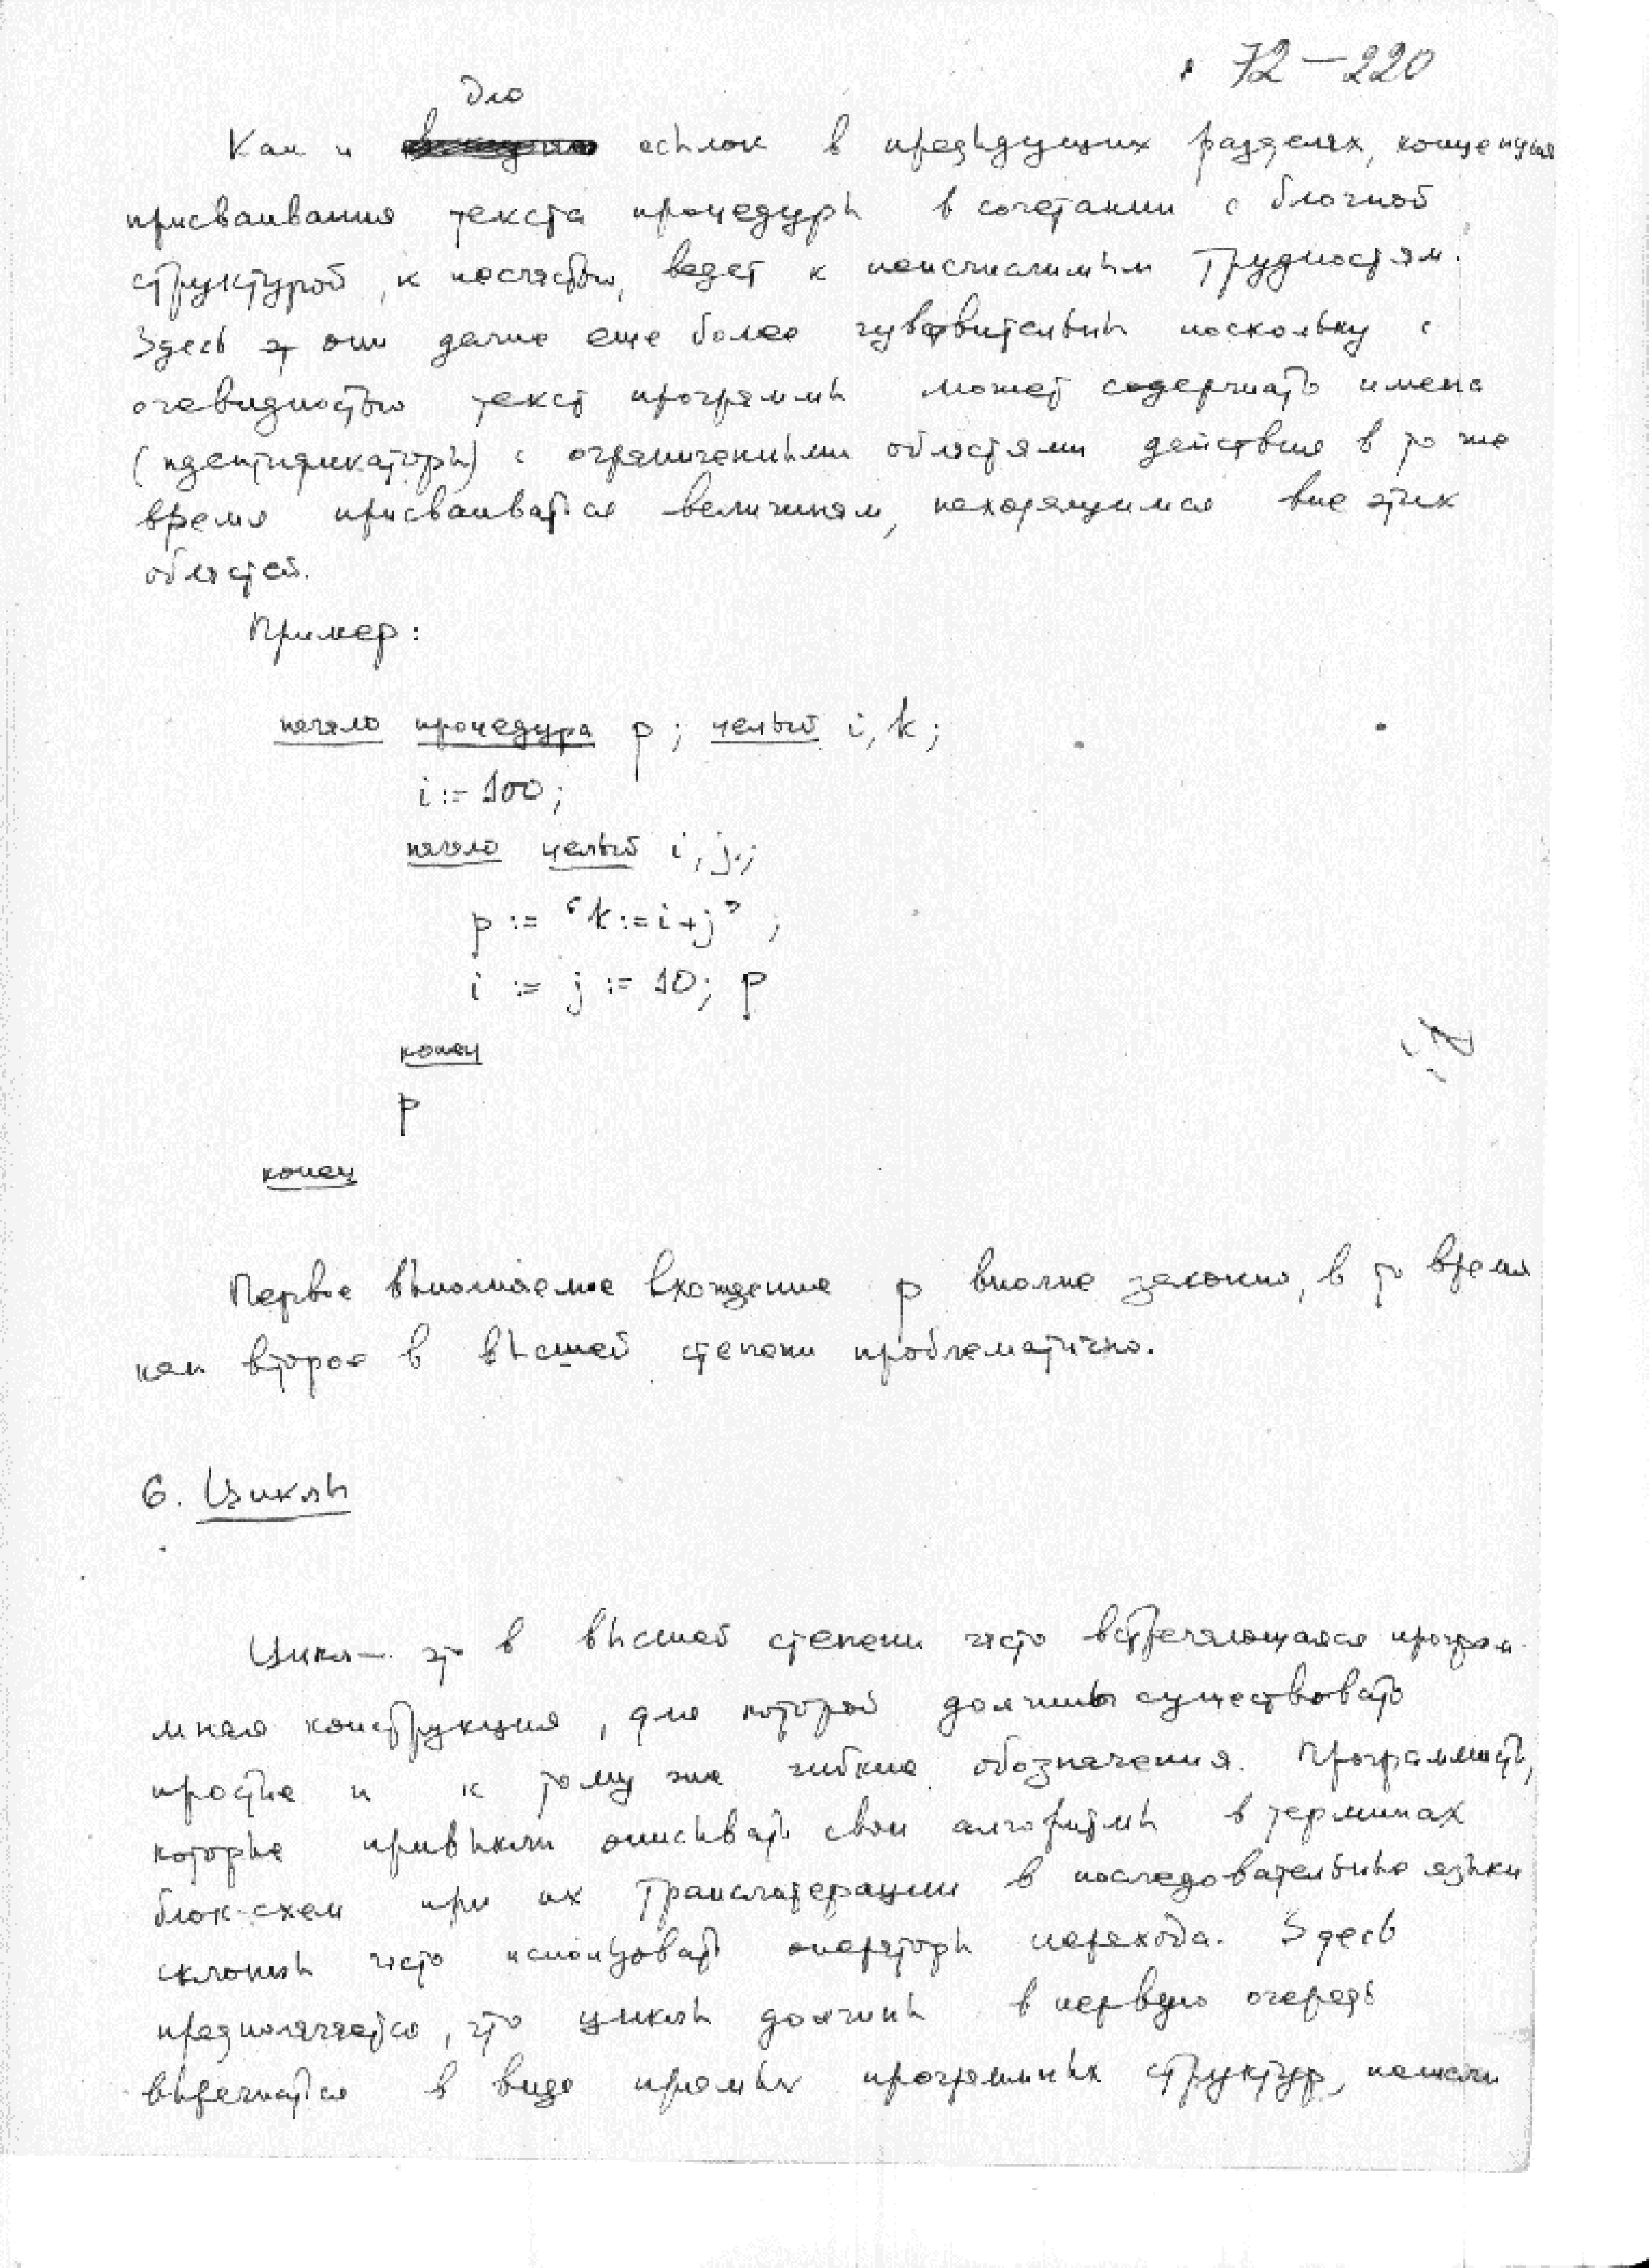 72-220
для
Как и ссылок в предыдущих разделах, концепция
присваивания текста процедуры в сочетании с блочной
структурой, к несчастью, ведет к неисчислимым трудностям.
Здесь они даже еще более чувствительны поскольку с
очевидностью текст программы может содержать имена
(идентификаторы) с ограниченными областями действия в то же
время присваивается величинам, находящимся вне этих
областей.
Пример:
начало процедура p; целый i, k;
i := 100;
начало целый i, j;
p := ‘k:=i+j’ ;
i := j := 10; p
конец
p
конец
Первое выполняемое вхождение p вполне законно, в то время
как второе в высшей степени проблематично.
6. Циклы
Цикл — это в высшей степени часто встречающаяся програм-
мная конструкция, для которой должны существовать
простые и к тому же гибкие обозначения. Программисты,
которые привыкли описывать свои алгоритмы в терминах
блок-схем при их транслитерации в последовательные языки
склонны часто использовать операторы перехода. Здесь
предполагается, что циклы должны в первую очередь
выражаться в виде прямых программных структур, нежели